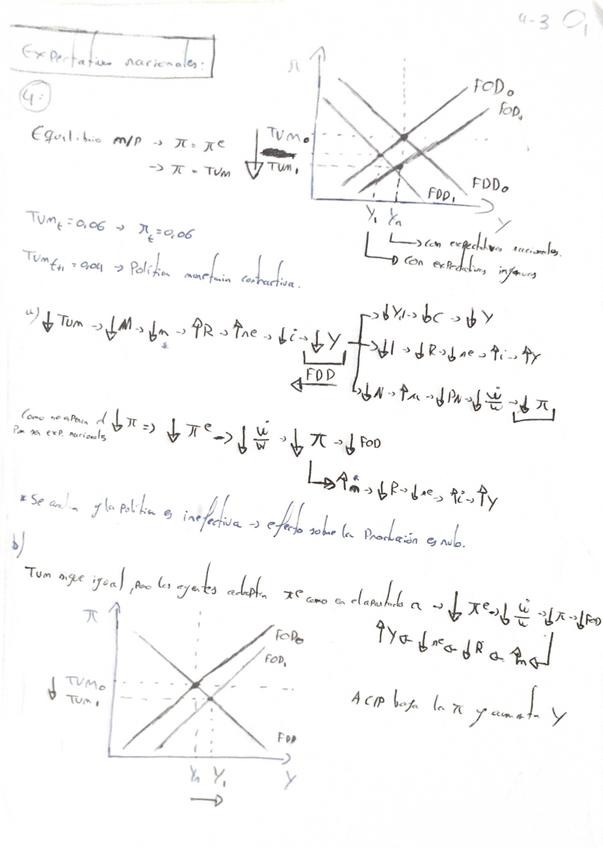 4-3 O1
Expectativas racionales:
4:
π
FOD₀
FOD₁
Equilibrio m/p → π = πᵉ
→ π = TUM
TUM₀
TUM₁
FDD₀
FDD₁
Y₁ Yn Y
con expectativas racionales.
con expectativas inerciales
TUMt = 0,06 → πt = 0,06
TUMt+1 = 0,04 → Política monetaria contractiva.
a) ↓TUM → ↓M → ↓m → ↑R → ↑ne → ↓i → ↓Y
FDD
→ ↓Yd → ↓C → ↓Y
→ ↓l → ↓R → ↓ne → ↑i → ↑Y
→ ↓N → ↑u → ↓PN → ↓ẇ/w → ↓π
Como se espera el ↓π => ↓πᵉ → ↓ẇ/w → ↓π → ↓FOD
Por ser exp. racionales
→ ↑m → ↓R → ↓ne → ↑i → ↑Y
* Se anula y la política es inefectiva → efecto sobre la Producción es nulo.
b)
TUM sigue igual, pero los agentes adaptan πᵉ como en el apartado a → ↓πᵉ → ↓ẇ/w → ↓π → ↓FOD
↑Y ← ↓ne ← ↓R ← ↑m
π
FOD₀
FOD₁
↓ TUM₀
TUM₁
FDD
Yn Y₁ Y
A C/P baja la π y aumenta Y